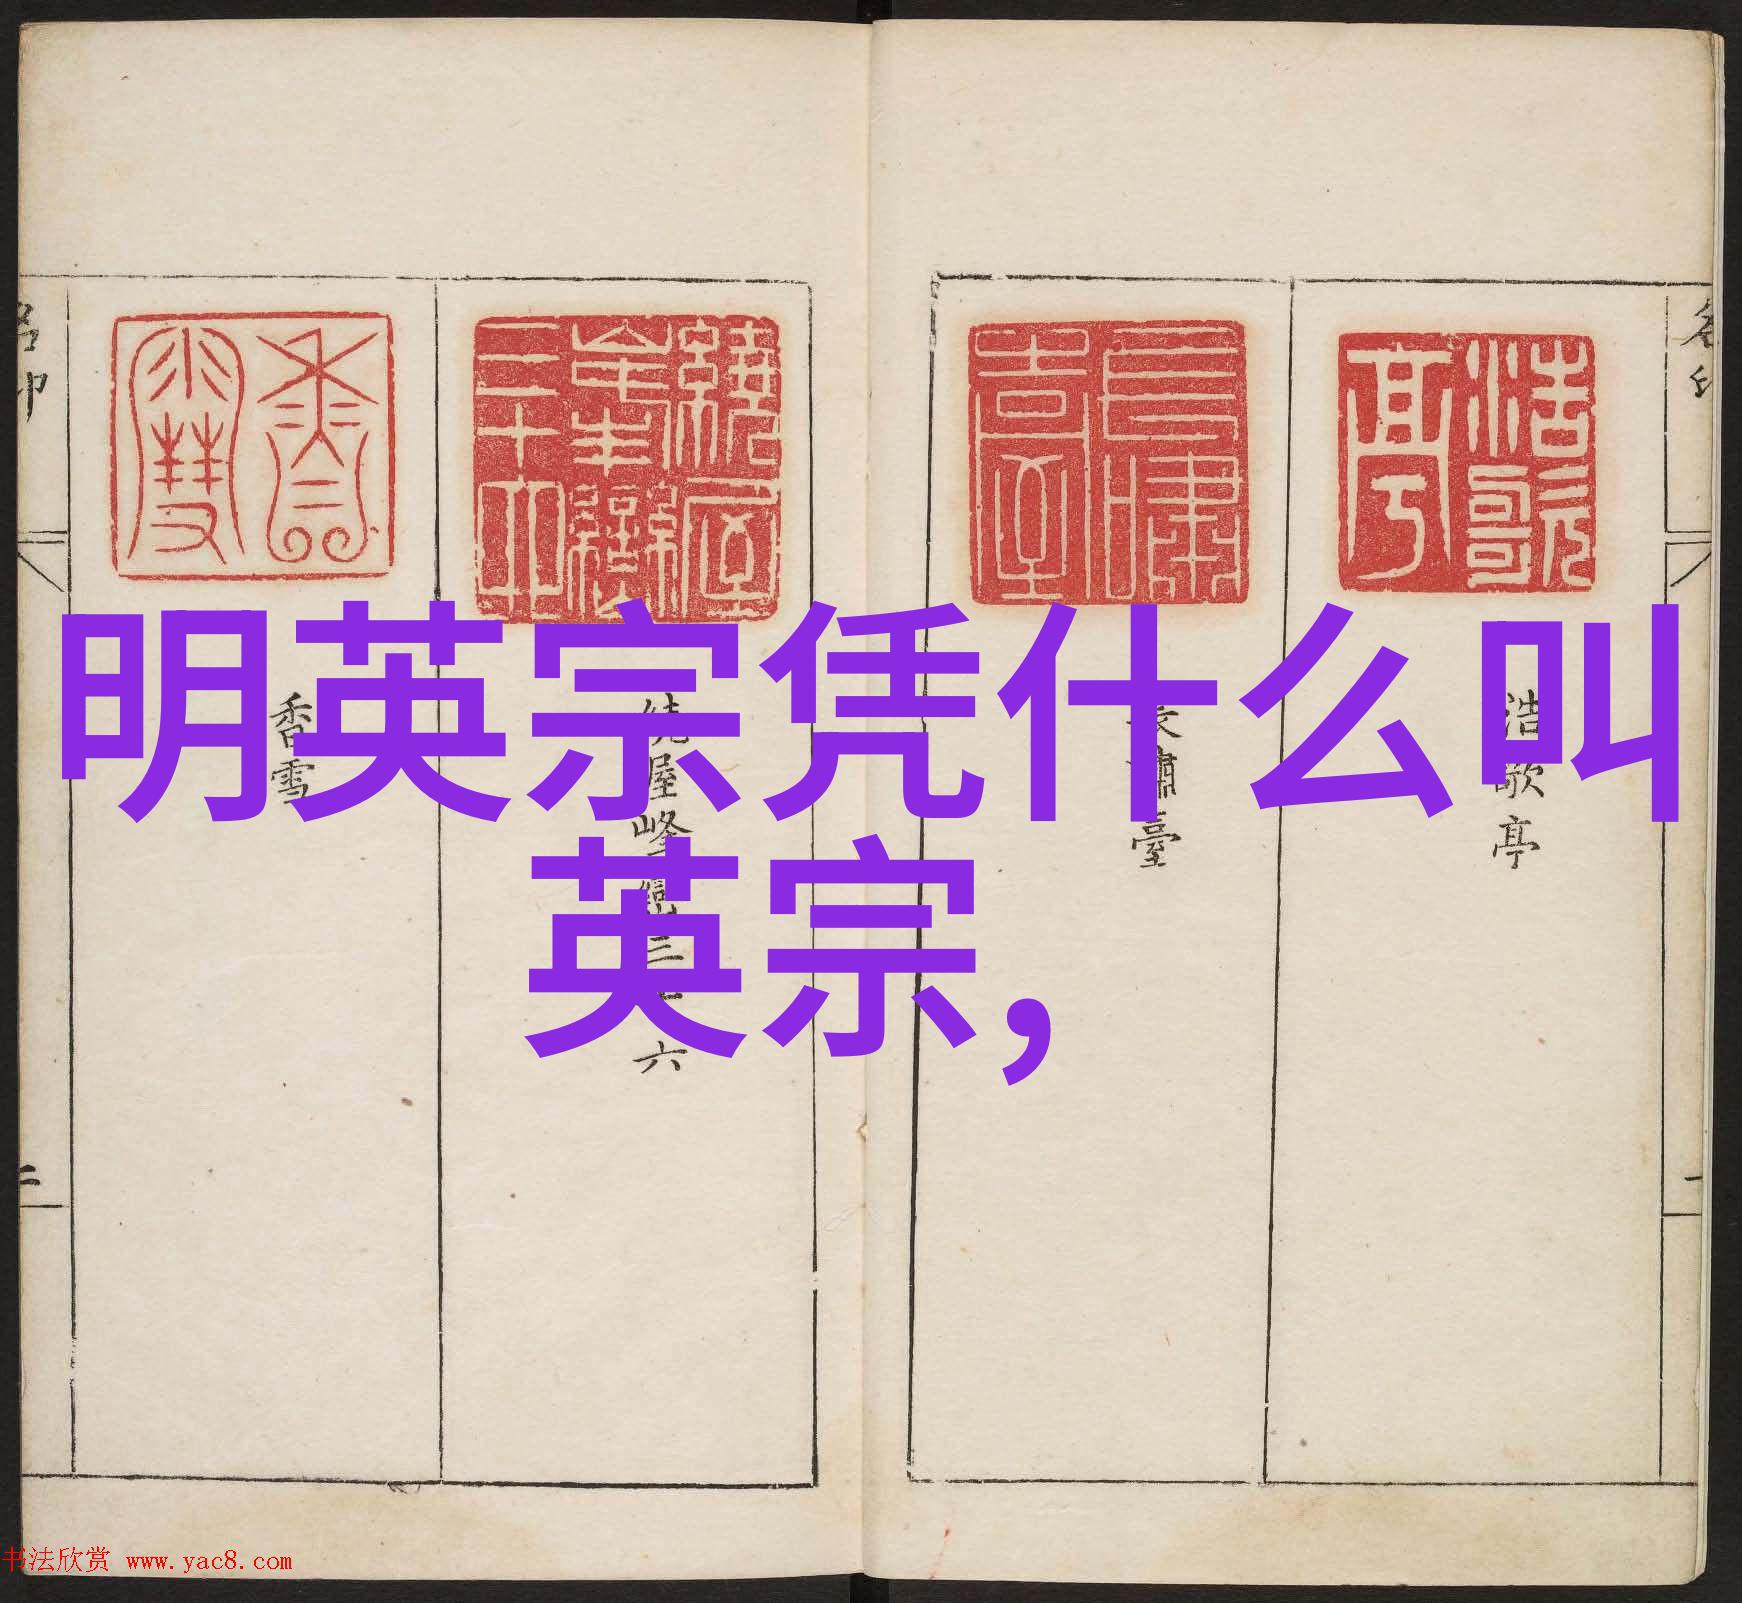 明英宗凭什么叫
英宗，
浩歌亭
長嘯臺
繞屋峰巒三十六
香雪
书法欣赏 www.yac8.com